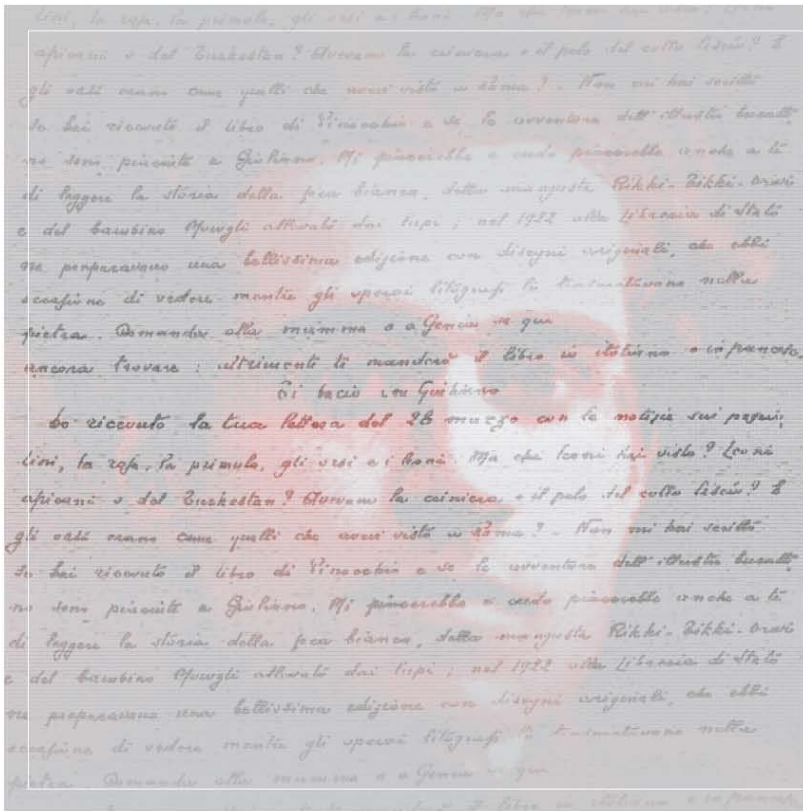 lini, la rosa, la primula, gli orsi e i leoni. Ma che leoni hai visto?
africani o del Turkestan? Avevano la criniera o il pelo del collo liscio? E
gli orsi erano come quelli che avevi visto a Roma? – Non mi hai scritto
se hai ricevuto il libro di Pinocchio e se le avventure dell'illustre buratti
no sono piaciute a Giuliano. Mi piacerebbe e credo piacerebbe anche a te
di leggere la storia della foca bianca, della mangusta Rikki-Tikki-
e del bambino Mowgli allevato dai lupi; nel 1922 alla Libreria di Stato
ne preparavano una bellissima edizione con disegni originali, che ebbi
occasione di vedere mentre gli operai litografi la nella
pietra. Domanda alla mamma o a Genia se può
ancora trovare: altrimenti ti manderò il libro in italiano o in francese.
Ti bacio con Giuliano
ho ricevuto la tua lettera del 28 marzo con le notizie sui pappagal
lini, la rosa, la primula, gli orsi e i leoni. Ma che leoni hai visto? Leoni
africani o del Turkestan? Avevano la criniera o il pelo del collo liscio? E
gli orsi erano come quelli che avevi visto a Roma? – Non mi hai scritto
se hai ricevuto il libro di Pinocchio e se le avventure dell'illustre buratti
no sono piaciute a Giuliano. Mi piacerebbe e credo piacerebbe anche a te
di leggere la storia della foca bianca, della mangusta Rikki-Tikki-
e del bambino Mowgli allevato dai lupi; nel 1922 alla Libreria di Stato
ne preparavano una bellissima edizione con disegni originali, che ebbi
occasione di vedere mentre gli operai litografi la nella
pietra. Domanda alla mamma o a Genia se può
il libro in italiano o in francese